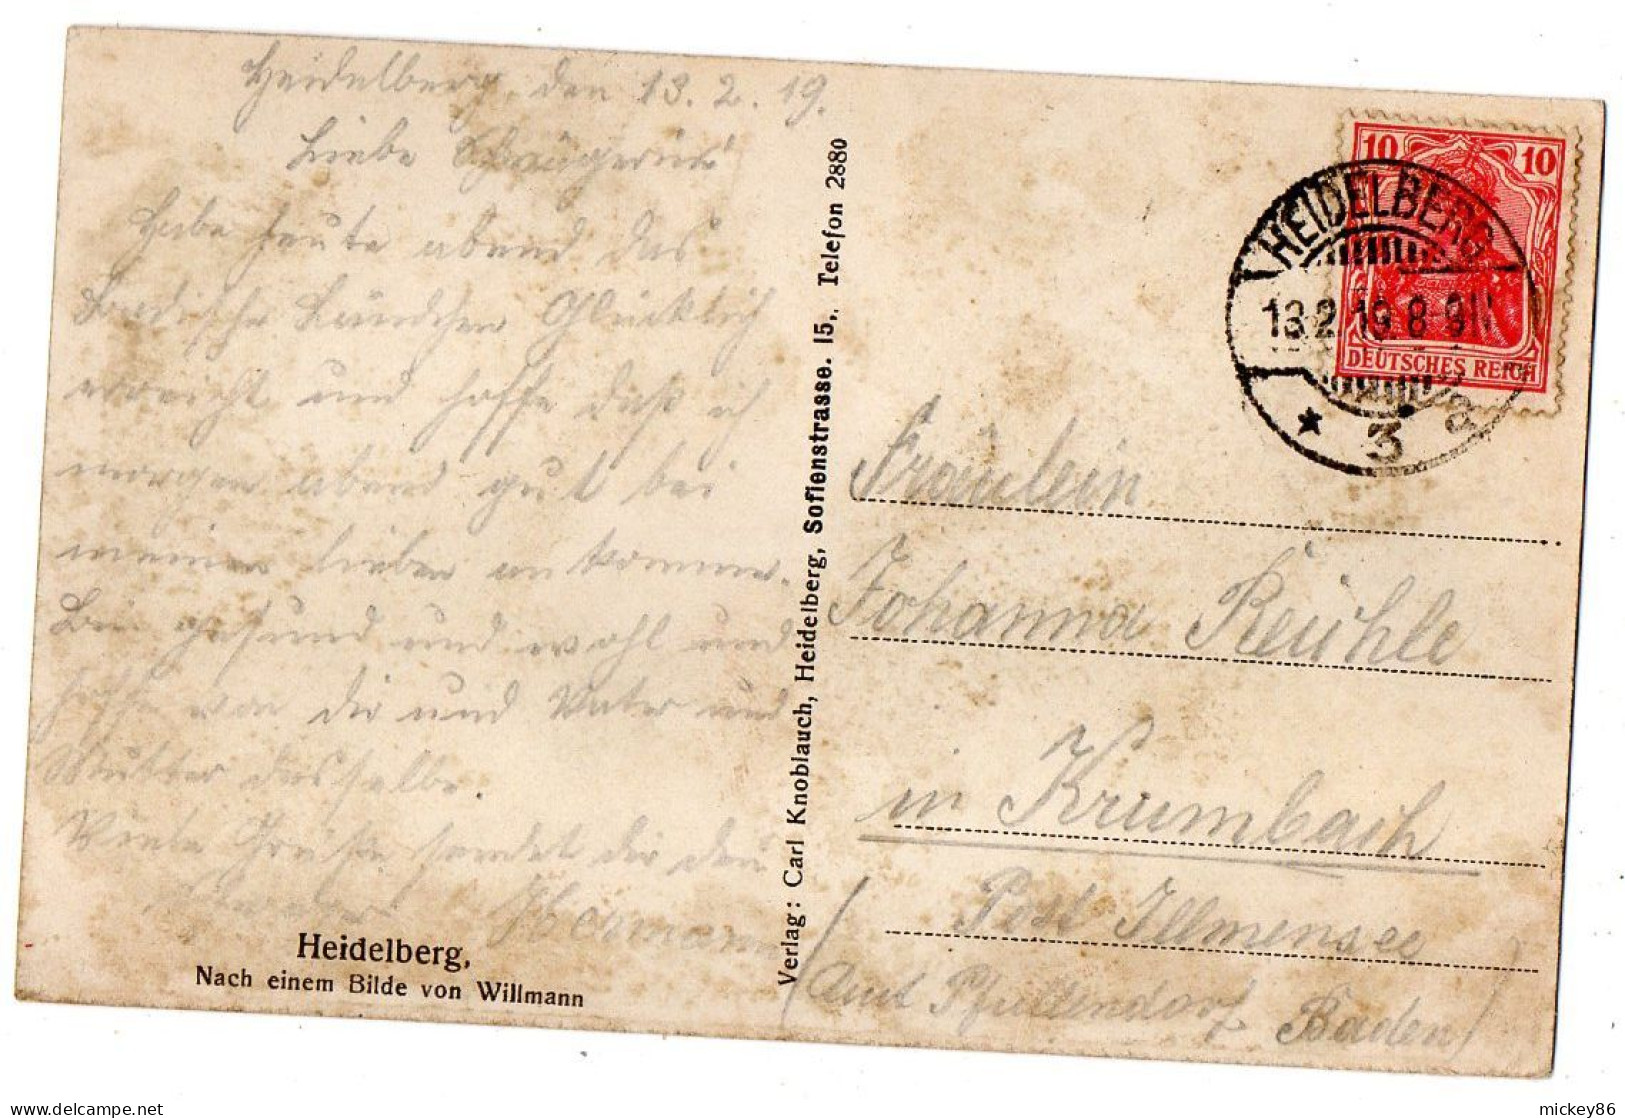 Heidelberg, den 13. 2. 19.
Liebe Schwägerin!
Habe heute abend das
Badische Ländchen Glücklich
erreicht und hoffe daß ich
morgen abend gut bei
meinen lieben ankomme.
Bin gesund und wohl und
hoffe von dir und Vater und
Mutter dasselbe.
Viele Grüße sendet dir dein
Schwager Hermann
Heidelberg,
Nach einem Bilde von Willmann
Verlag: Carl Knoblauch, Heidelberg, Sofienstrasse. 15,. Telefon 2880
10 10
DEUTSCHES REICH
HEIDELBERG
13.2.19. 8-9N
* 3
Fräulein
Johanna Reuhle
in Krumbach
(Post Illmensee
Amt Pfullendorf Baden)
mickey86